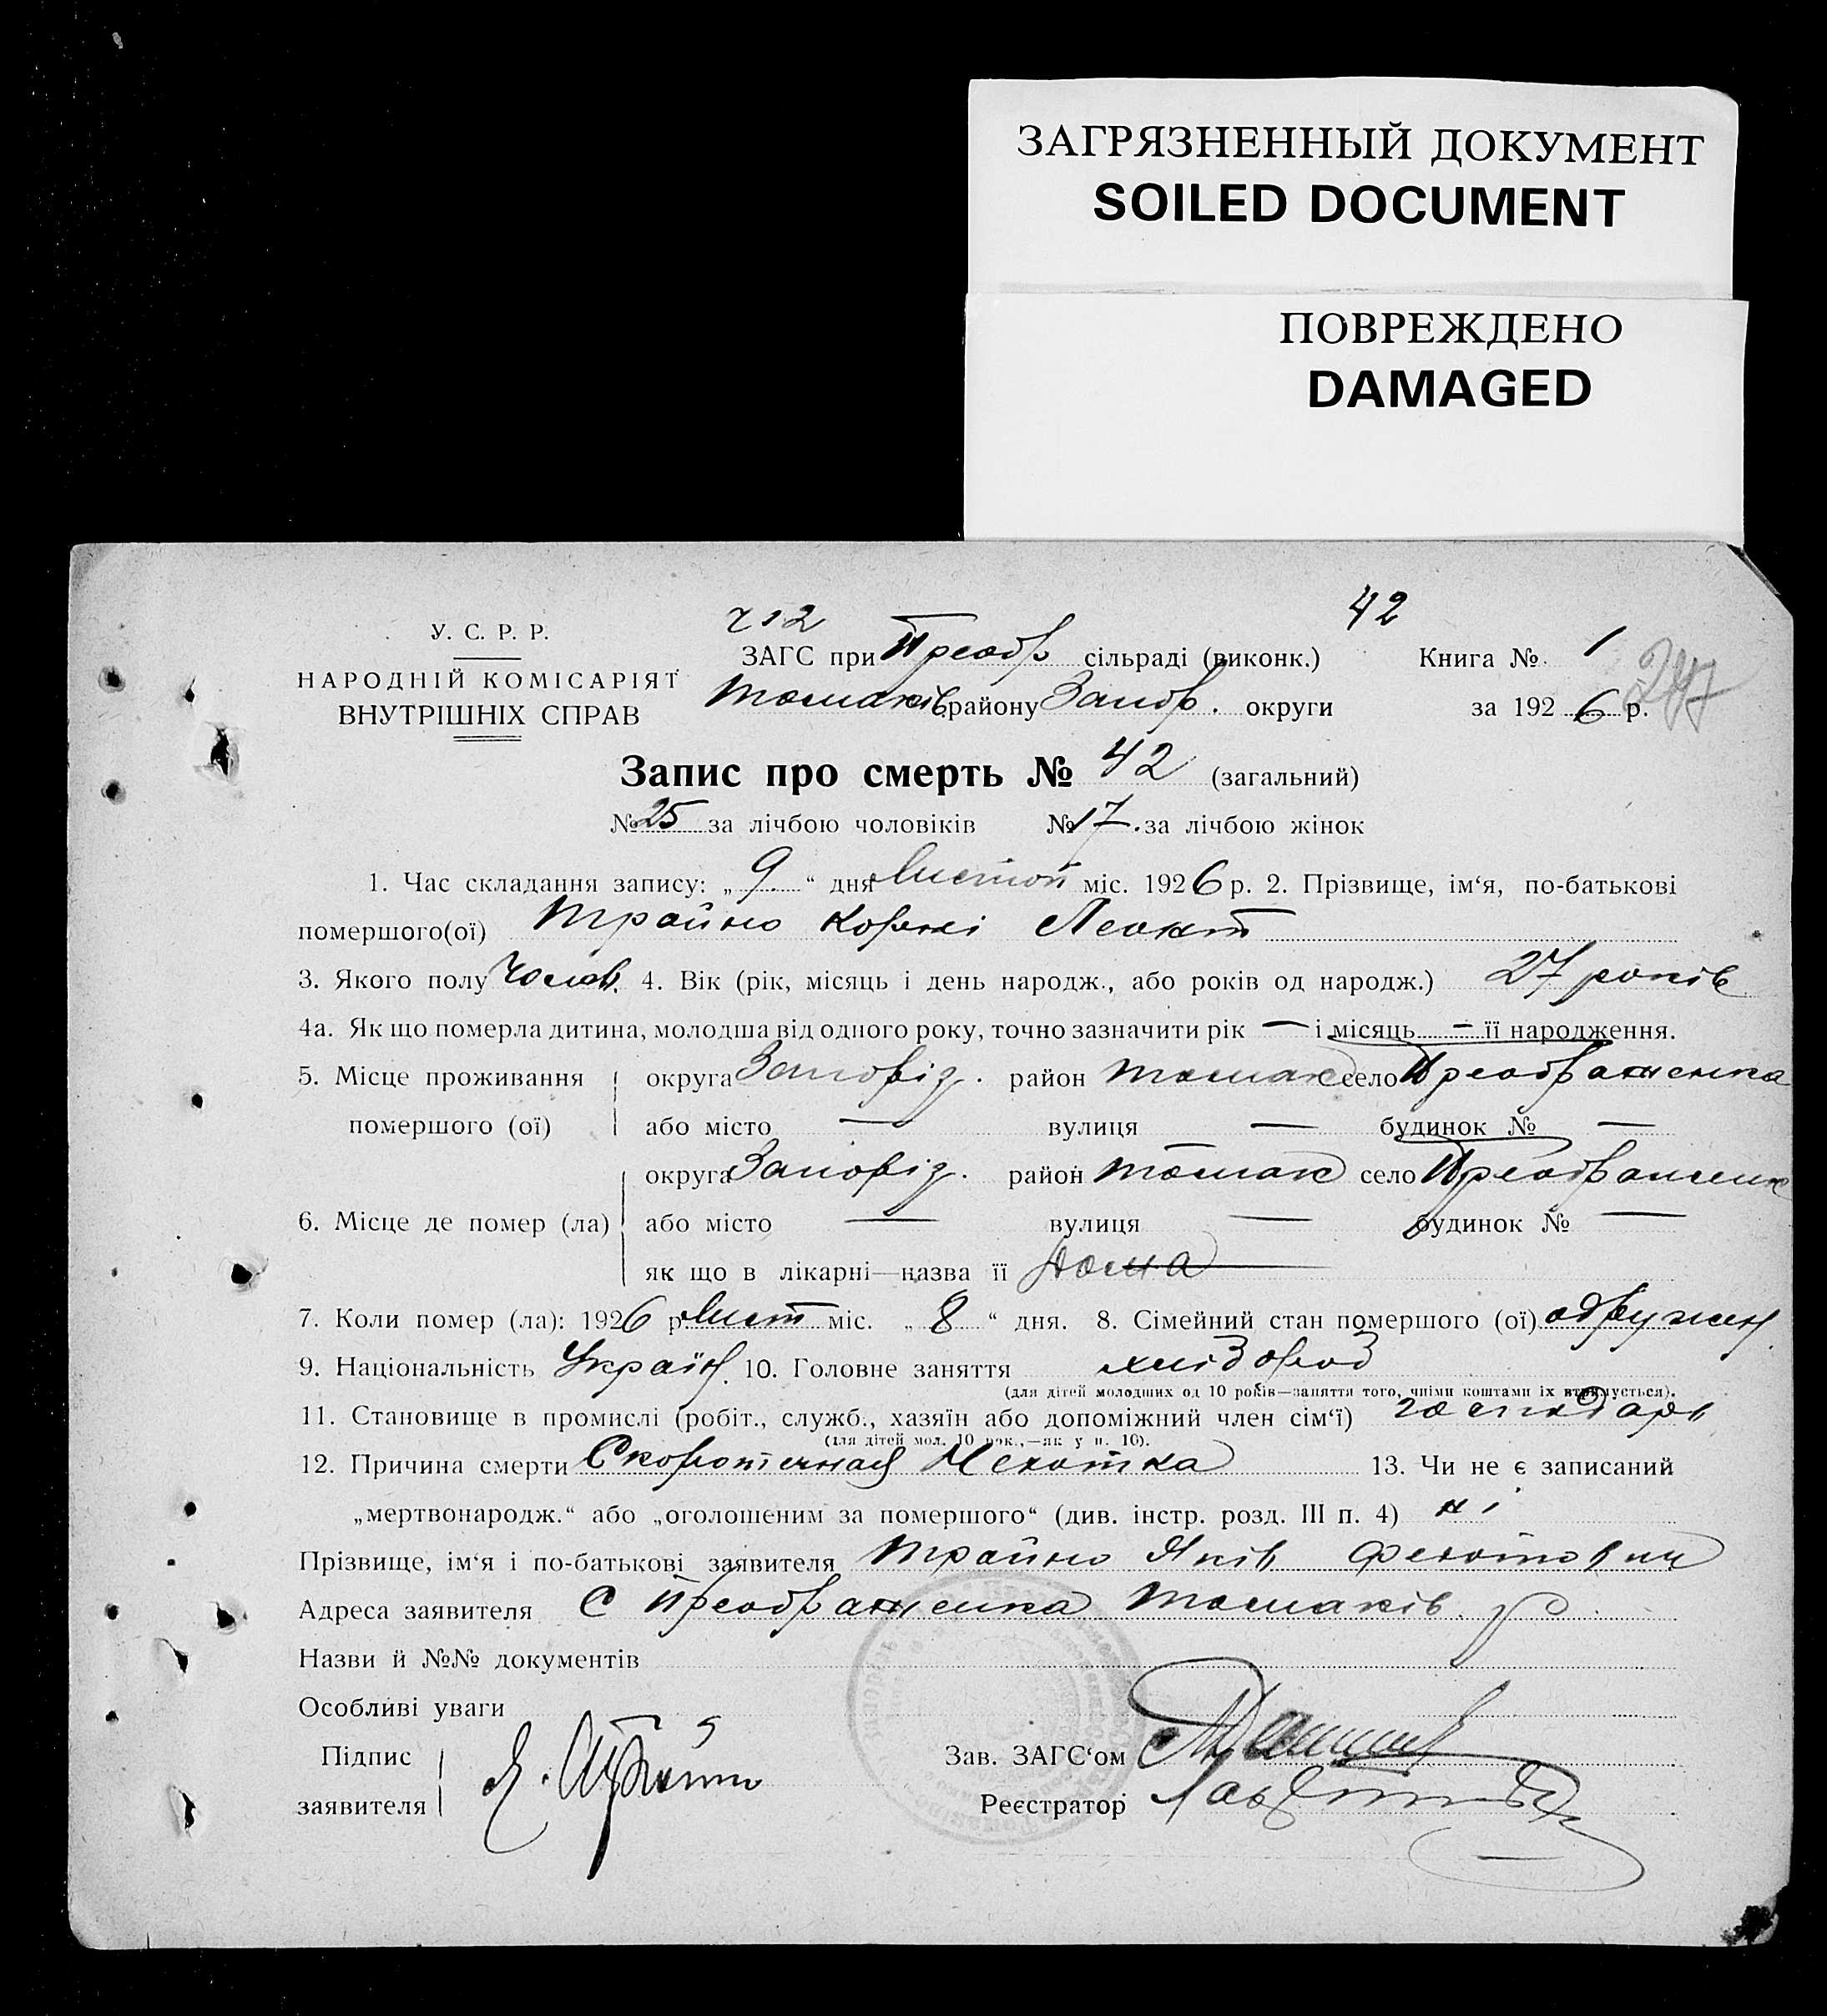 ЗАГРЯЗНЕННЫЙ ДОКУМЕНТ
SOILED DOCUMENT
ПОВРЕЖДЕНО
DAMAGED
42
У. С. Р. Р.
НАРОДНІЙ КОМІСАРІЯТ
ВНУТРІШНІХ СПРАВ
ЗАГС при Преобр сільраді (виконк.) Книга № 1
247
Томаків району Запор. округи за 1926 р.
Запис про смерть № 42 (загальний)
№ 25 за лічбою чоловіків № 17. за лічбою жінок
1. Час складання запису: „ 9 “ дня Листоп міс. 1926 р. 2. Прізвище, ім‘я, по-батькові
помершого(ої) Трайно Корні
3. Якого полу Чолов. 4. Вік (рік, місяць і день народж., або років од народж.) 27 років
4а. Як що померла дитина, молодша від одного року, точно зазначити рік — і місяць — її народження.
5. Місце проживання округа Запоріз. район Томак село Преображенка
помершого (ої) або місто — вулиця — будинок № —
округа Запоріз. район Томак село Преображенк
6. Місце де помер (ла) або місто — вулиця — будинок № —
як що в лікарні—назва її дома
7. Коли помер (ла): 1926 р. Лист міс. „ 8 “ дня. 8. Сімейний стан помершого (ої) одружен.
9. Національність Україн. 10. Головне заняття хлібороб
(для дітей молодших од 10 років—заняття того, чиїми коштами їх втримується).
11. Становище в промислі (робіт., служб., хазяїн або допоміжний член сім‘ї) господарь
(для дітей мол. 10 рок.,—як у п. 10).
12. Причина смерти Скоротечная Чехотка 13. Чи не є записаний
„мертвонародж.“ або „оголошеним за помершого“ (див. інстр. розд. III п. 4) ні
Прізвище, ім‘я і по-батькові заявителя Трайно Яків Феютович
Адреса заявителя С Преображенка Томаків. р
Назви й №№ документів
Особливі уваги
Підпис
заявителя
Зав. ЗАГС‘ом
Реєстратор